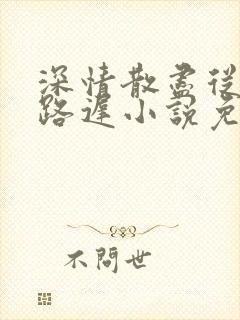 深情散盡從
路遲小說免
不問世